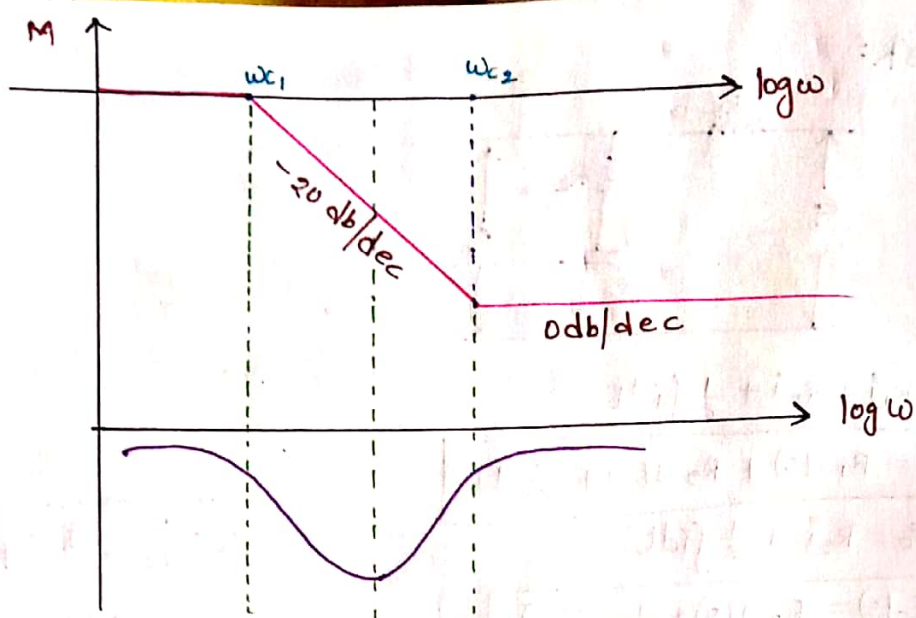 M
ωc₁
ωc₂
log ω
-20 db/dec
0db/dec
log ω